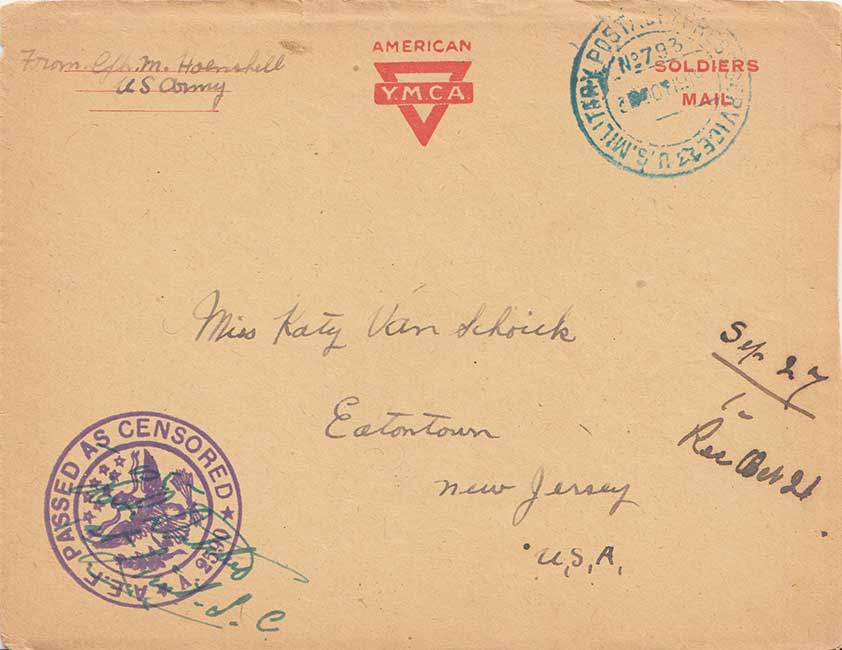 From Cpl. M. Hoenshell
US Army
AMERICAN
Y.M.C.A.
SOLDIERS
MAIL
U.S. MILITARY POSTAL EXPRESS SERVICE
No 793
Miss Katy Van Schoick
Eatontown
New Jersey
U.S.A.
Sep. 27
Rec Oct 21
A.E.F. PASSED AS CENSORED